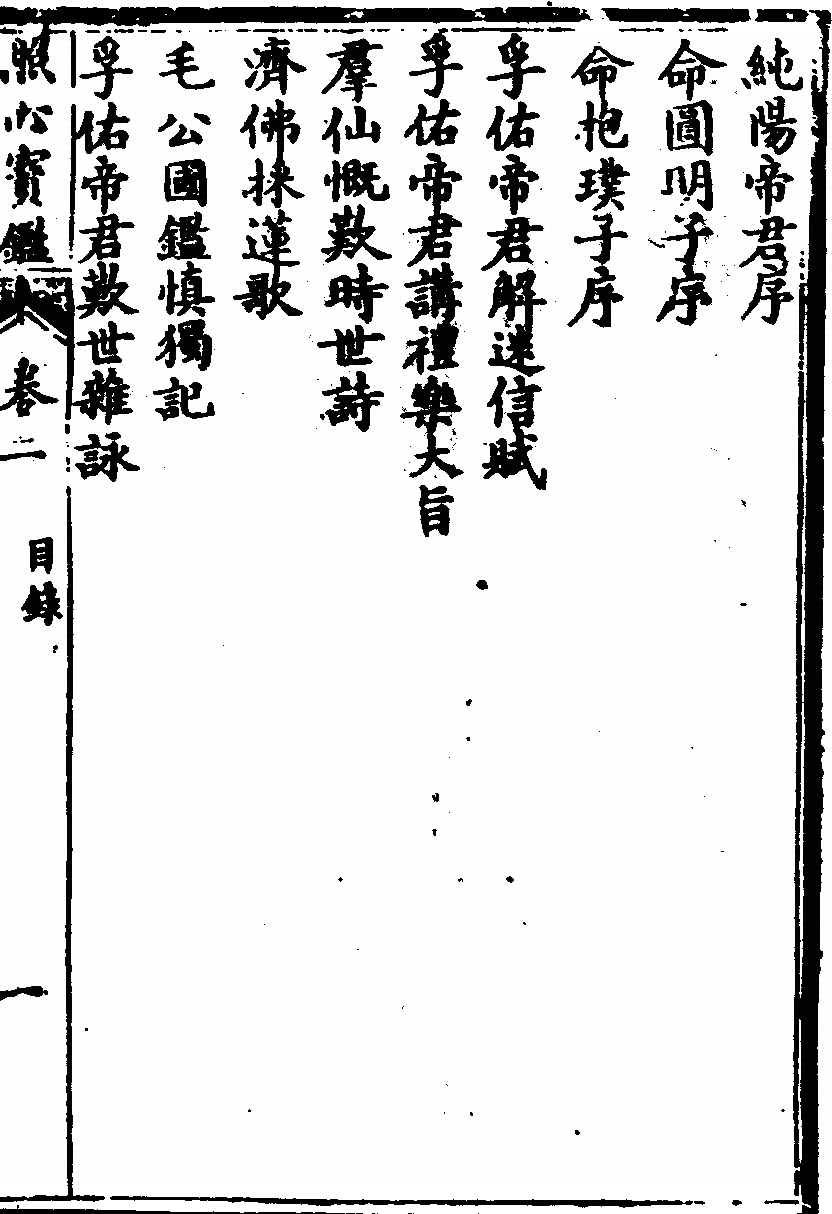 純陽帝君序
命圓明子序
命抱璞子序
孚佑帝君解迷信賦
孚佑帝君講禮樂大旨
羣仙慨歎時世詩
濟佛採蓮歌
毛公國鑑慎獨記
孚佑帝君歎世雜詠
照心寶鑑 卷二 目錄 一